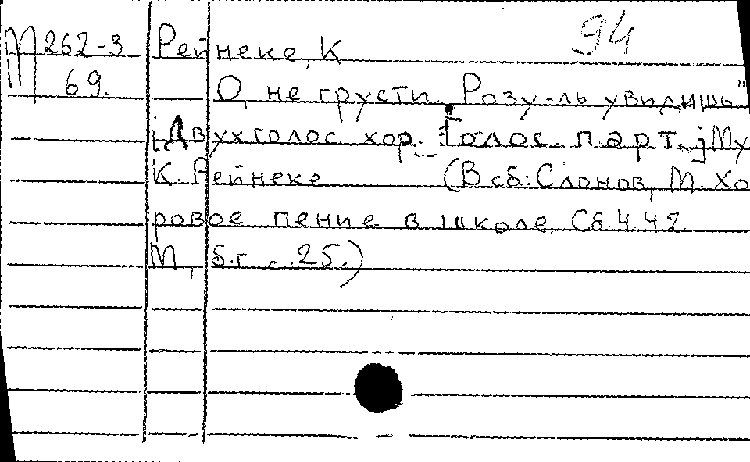 94
М 262-3 Рейнеке, К
69. О, не грусти. „Розу-ль увидишь"
[Двухголос. хор. Голос. парт.] Му
К. Рейнеке (В сб: Слонов, М. Хо
ровое пение в школе. Сб.4.42
М., б.г. с. 25.)